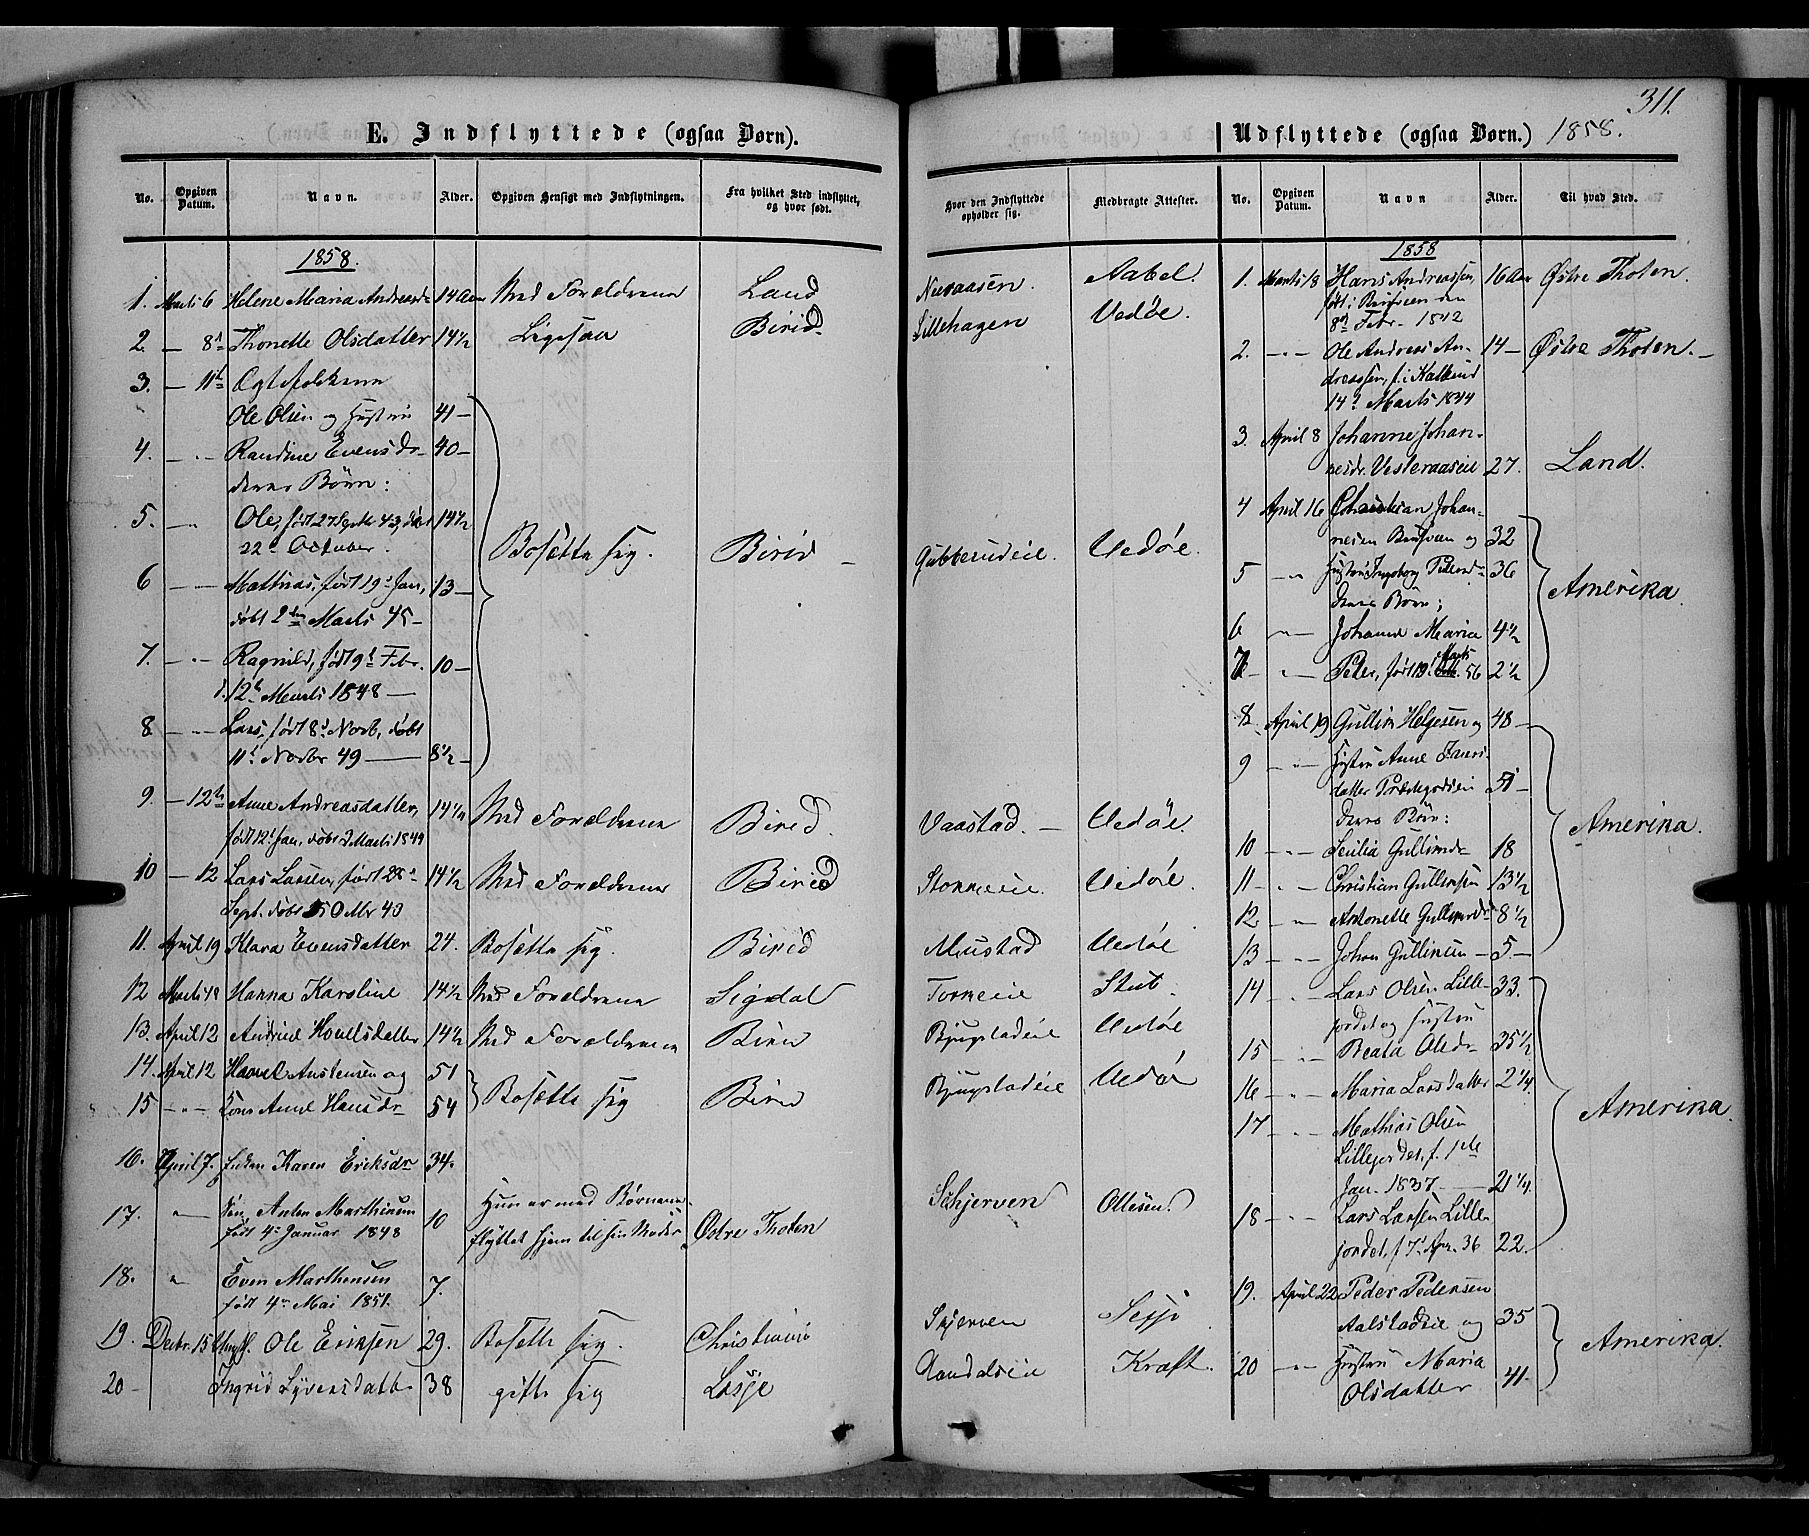 311.
E. Indflyttede (ogsaa Børn).
No. Opgiven Datum. Navn. Alder. Opgiven Hensigt med Indflytningen. Fra hvilket Sted indflyttet, og hvor født. Hvor den Indflyttede opholder sig. Medbragte Attester.
1858.
1. Marts 6 Helene Maria Andreasdr 14 Aar Med Forældrene Land Aabel.
2. — 8d Thonette Olsdatter 14½ Ligesaa Birid. Lillehagen Vedøe.
3. — 11te Egtefolkene
Ole Olsen og Hustru 41 —
4. — " — Randine Evensdr 40 —
deres Børn:
5. — " Ole, født 27 Septb 43, døbt 14½
22de October. Bosætte sig. Birid Gubberudeie. Vedøe.
6 — " — Mathias, født 19d Jan, 13 —
døbt 2den Marts 45 —
7. — " — Ragnild, født 9d Febr. 10 —
d. 12te Marts 1848 —
8 — " — Lars, født 8d Novb, døbt
11d Novbr 49 — 8½ —
9. — 12te Anne Andreasdatter, 14½ Med Forældrene Birid. Vaastad. — Vedøe.
født 12d Jan, døbt 2 Marts 1844
10 — 12 Lars Larsen, født 28d 14½ Med Forældrene Birid Vedøe.
Sept. døbt 15 Oktbr 43
11. April 19 Klara Evensdatter 24. Bosætte sig. Birid Mustad Vedøe
12 Marts Hanna Karoline 14½ Med Forældrene Sigdal Torneeie Stub.
13. April 12 Andrine Hovelsdatter 14½ Med Forældrene Birid Bjugstadeie Vedøe
14. April 12 Haavel Austensen og 51
Bosætte sig Birid Bjugstadeie Vedøe
15 — " — Kone Anne Hansdr 54
16. April 7. Enken Karen Eriksdr 34.
17. " Søn, Anton Marthinsen 10 Hun er med Børnene Schjerven Ottesen.
født 4de Januar 1848 flyttet hjem til sin Moder Østre Thoten
18. " Even Marthinsen 7.
født 4de Mai 1851.
19. Decbr. 15 Ungk. Ole Eriksen 29. Bosætte sig. Christiania Skjerven
20 — Ingrid Syversdatter 38 gifte sig Lesje Kraft.
Udflyttede (ogsaa Børn.) 1858.
No. Opgiven Datum. Navn Alder. Til hvad Sted.
1858
1. Marts 18 Hans Andreassen, 16 Aar Østre Thoten.
født i Brusveen den
8de Febr. 1842
2. — " — Ole Andreas An- 14 — Østre Thoten. —
dreassen, f. i Kalkeud
14de Marts 1844
3. April 8 Johanne Johan-
nesdr. Vesteraaseie 27. Land.
4 April 16 Christian Johan-
nesen Brusveen og 32
5 — " — Hustru Ingeborg Pedersd 36
deres Børn; Amerika.
6 " — Johanne Maria 4½
7 — " — Peter, født 19d Marts 56 2½
8. April 19 Gullik Helgesen og 48 —
9 — " — Hustru Anne Iversdatter Præstegodseie 51 —
deres Børn: Amerika.
10 — " — Cecilia Gulliksdr 18
11 — " — Christian Gulliksen 13½
12. — " Antonette Gulliksdr 8½
13 — " — Johan Gulliksen — 5 —
14 — " — Lars Olsen Lille- 33.
jordet og Hustru
15 — " — Beata Olsdr 35½
16 — " — Maria Larsdatter 2¼. Amerika.
17 — " — Mathias Olsen
Lillejordet, f. 1ste
Jan. 1837. — 21¼.
18 — " — Lars Larsen Lille-
jordet, f 7d Apr. 36 22.
19. April 22 Peder Pedersen
Aalstadeie og 35
Amerika.
20 — " — Hustru Maria
Olsdatter 41 —